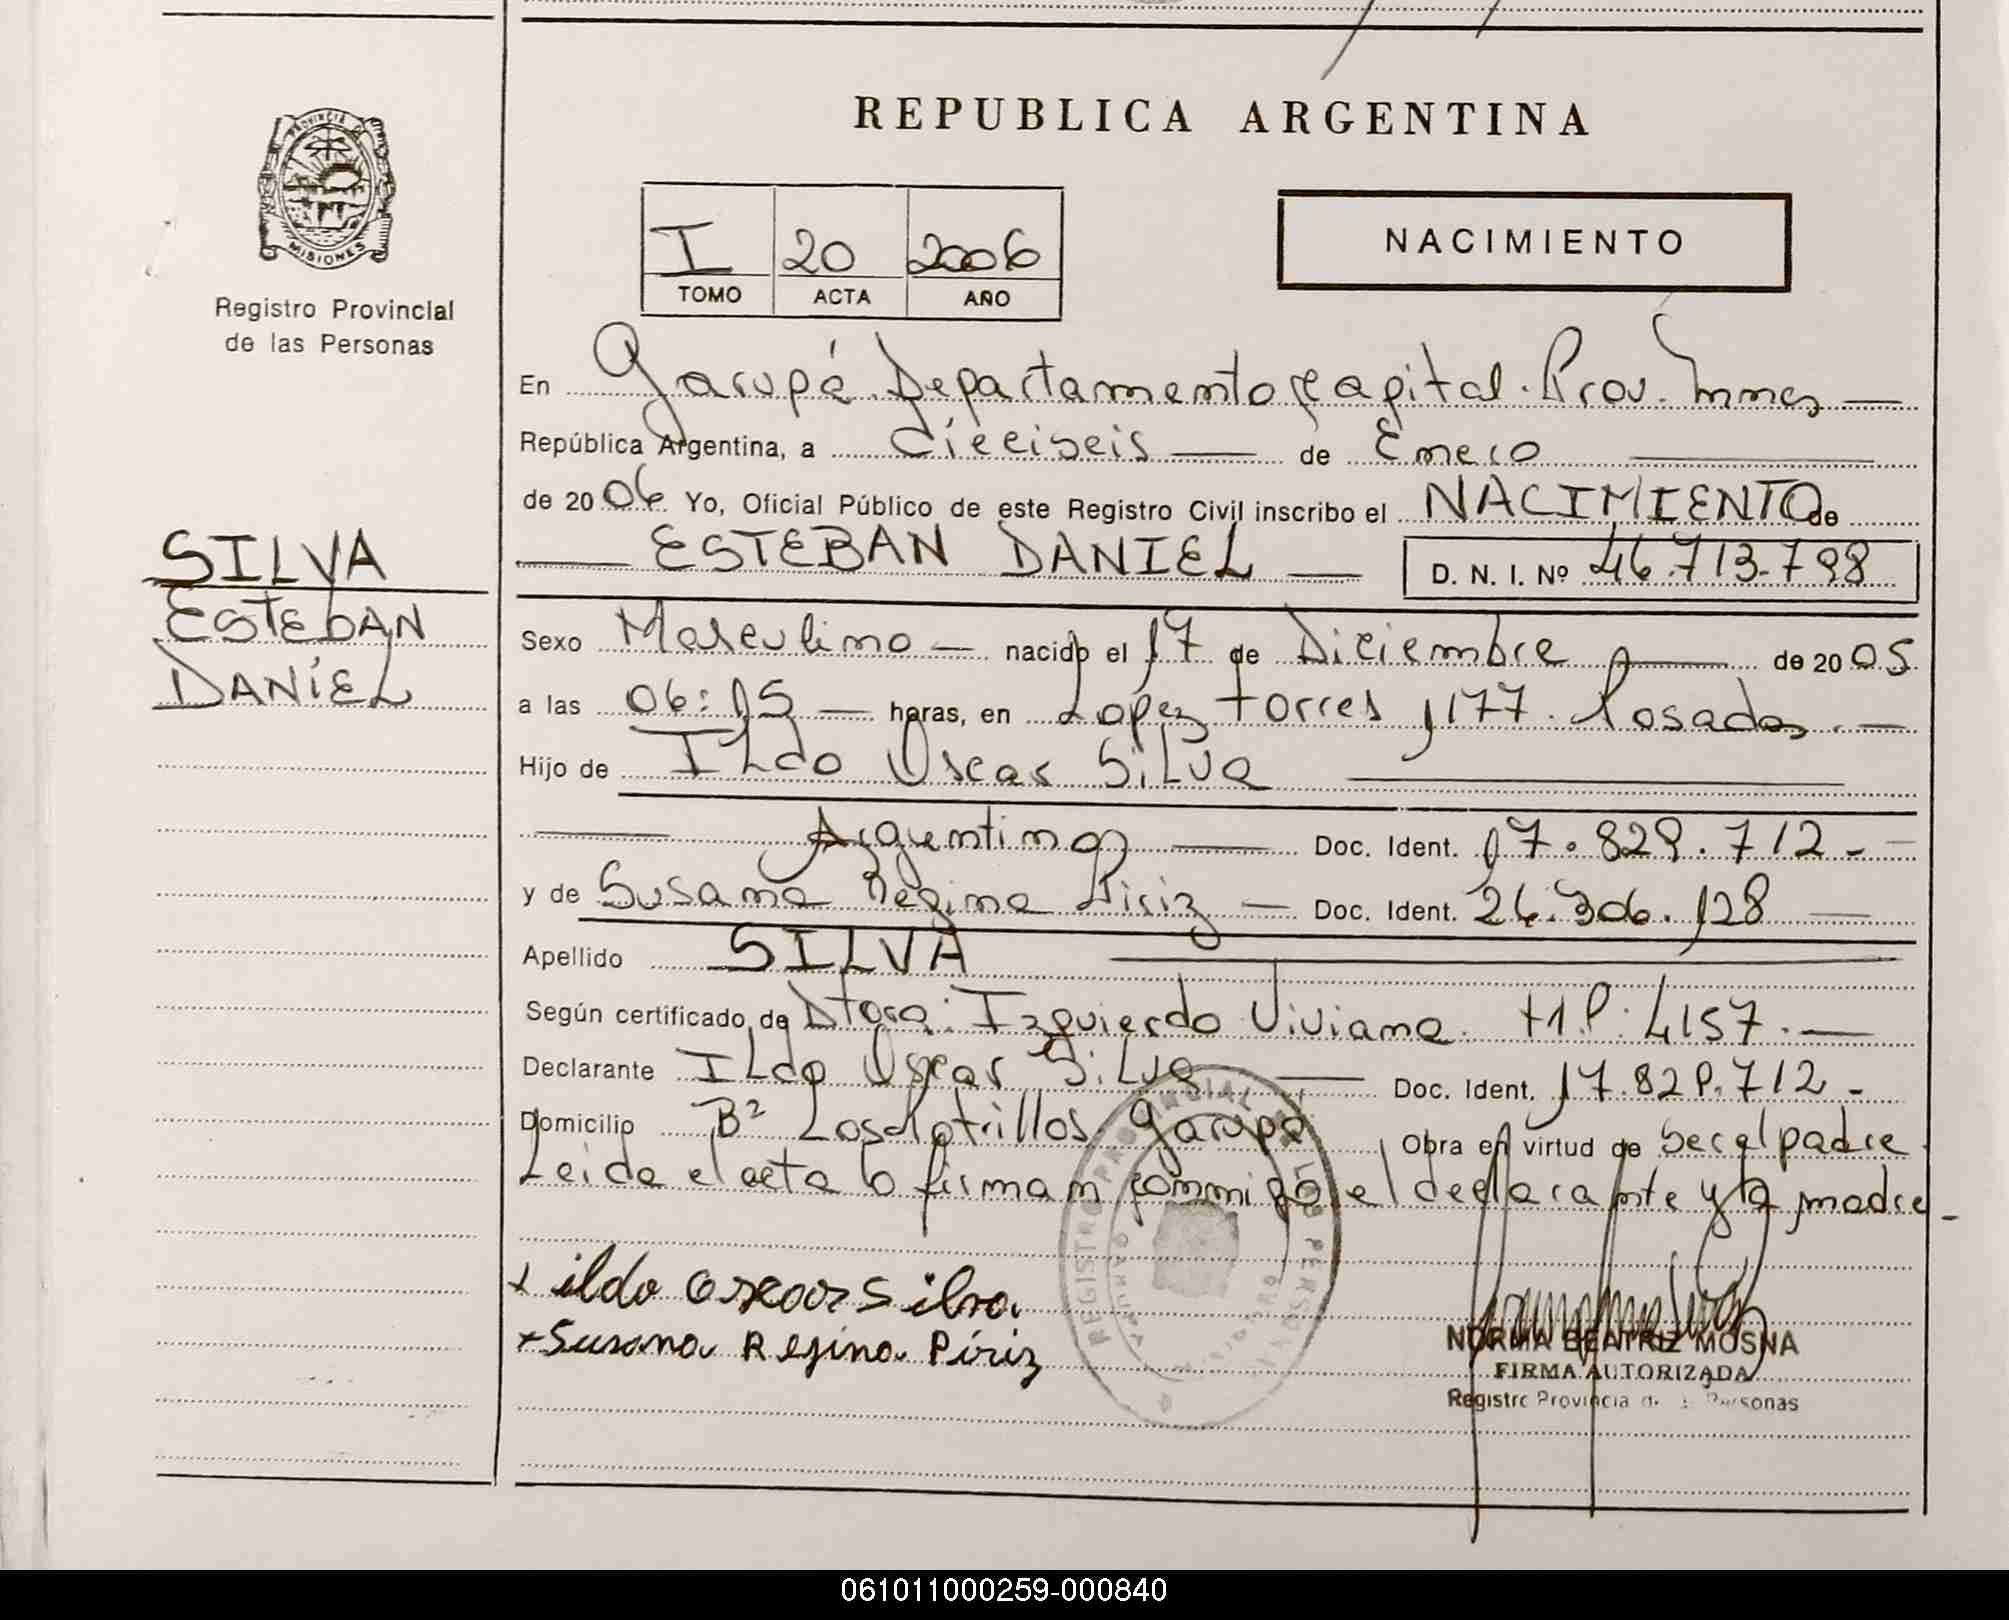 REPUBLICA ARGENTINA
PROVINCIA DE MISIONES
Registro Provincial
de las Personas
I 20 2006
TOMO ACTA AÑO
NACIMIENTO
En Garupá Departamento Capital. Prov. Mnes
República Argentina, a dieciseis de Enero
de 2006 Yo, Oficial Público de este Registro Civil inscribo el NACIMIENTO de
ESTEBAN DANIEL D. N. I. Nº 46.713.798
SILVA
ESTEBAN
DANIEL
Sexo Masculino nacido el 17 de Diciembre de 2005
a las 06:15 horas, en Lopez Torres 1177. Posadas.
Hijo de Ildo Oscar Silva
Argentino Doc. Ident. 17.829.712.-
y de Susana Regina Piriz Doc. Ident. 26.306.128
Apellido SILVA
Según certificado de Dtora: Izquierdo Viviana. M.P: 4157.
Declarante Ildo Oscar Silva Doc. Ident. 17.829.712-
Domicilio Bº Los Potrillos, Garupá Obra en virtud de ser el padre.
Leida el acta lo firman conmigo el declarante y la madre-
x ildo oscar Silva
x Susana Regina Píriz
REGISTRO PROVINCIAL DE LAS PERSONAS
NORMA BEATRIZ MOSNA
FIRMA AUTORIZADA
Registro Provincial de las Personas
061011000259-000840